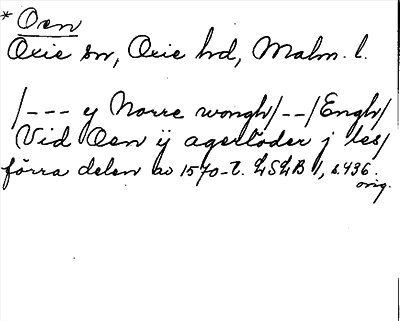 * Oen
Oxie sn, Oxie hd, Malm. l.
/--- y Norre wongh/--/Engh/
Vid Oen ij agerlöder j les/
förra delen av 1570-t. LSLB 1, s. 436.
orig.